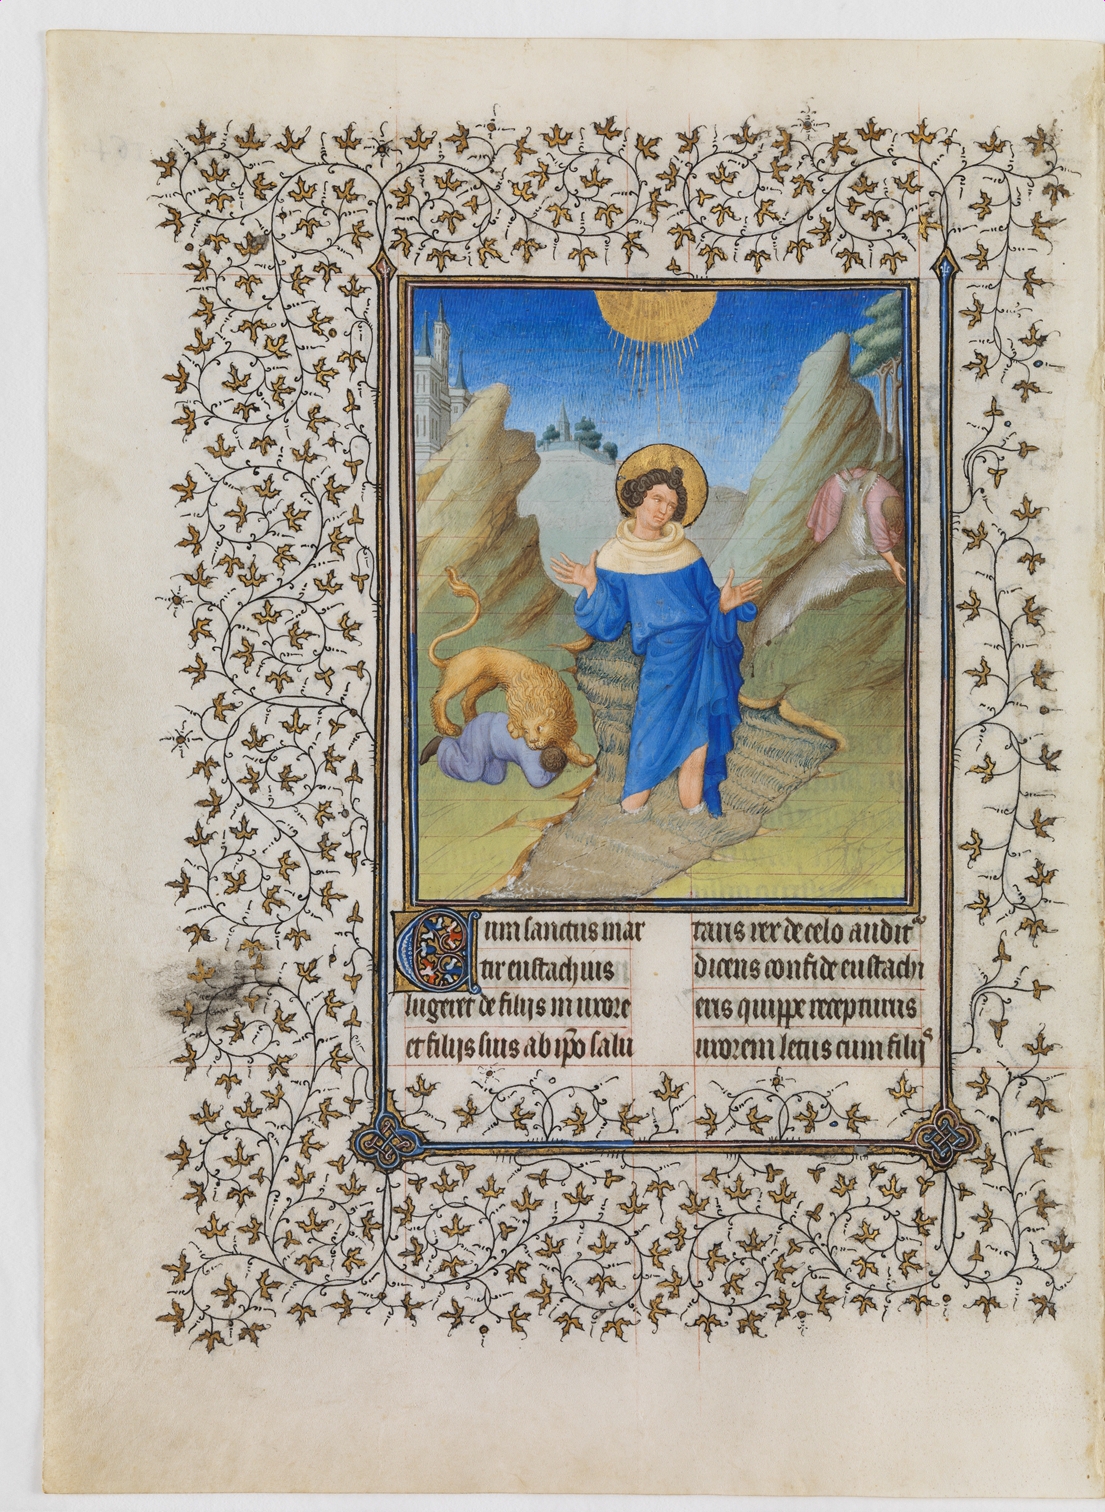 Cum sanctus mar
tir eustachius
lugeret de filijs in uxore
et filijs suis ab ip̄o salu
taris rex de celo audit᷑
dicens confide eustachi
eris quippe recepturus
uxorem letus cum filijs